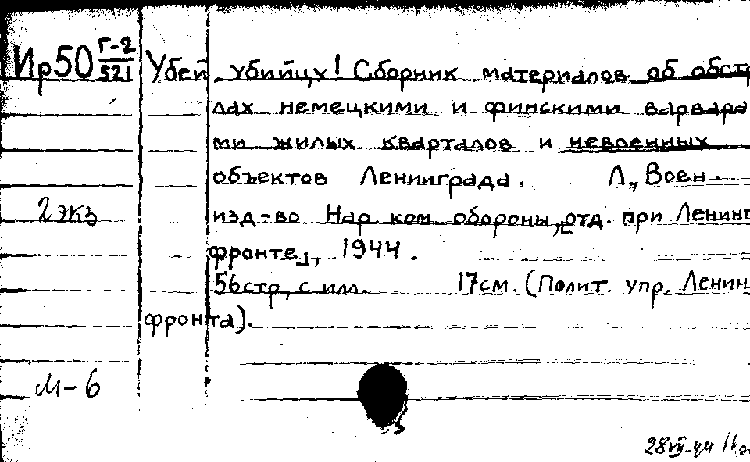 Ир50 Г-2/521 Убей убийцу! Сборник материалов об обстр
лах немецкими и финскими варвара
ми жилых кварталов и невоенных
объектов Ленинграда. Л., Воен.
2 экз изд-во Нар ком. обороны, отд. при Ленинг
фронте, 1944.
56 стр, с илл. 17 см. (Полит. упр. Ленин
фронта).
М-6
28